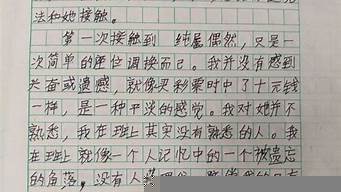 法和她接触。
第一次接触到 纯属偶然，只是一
次简单的座位调接而已。我并没有感到
兴奋或遗感，就像买彩票时中了十元钱
一样，是一种平淡的感觉。我对她并不
熟悉，我在班上其实没有熟悉的人。我
在班上就像一个人记忆中的一个被遗忘
的角落。没有人